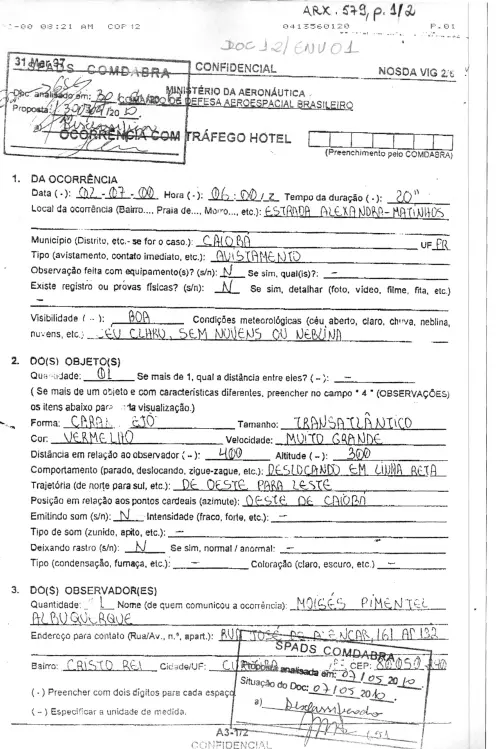 ARX. 579, p. 1/2
-00 08:21 AM COP 12 0413560120 P.01
DOC 12/ ENV 01
31 Mar 97
SPADS COMDABRA CONFIDENCIAL NOSDA VIG 2
Doc analisado em: MINISTÉRIO DA AERONÁUTICA
COMANDO DE DEFESA AEROESPACIAL BRASILEIRO
Proposta: /20 10
a)
OCORRÊNCIA COM TRÁFEGO HOTEL
(Preenchimento pelo COMDABRA)
1. DA OCORRÊNCIA
Data ( · ): 02 - 07 - 00 Hora ( · ): 06 : 00 / Z Tempo da duração ( - ): 20"
Local da ocorrência (Bairro..., Praia de..., Morro..., etc.): ESTRADA ALEXANDRA - MATINHOS
Município (Distrito, etc. - se for o caso.): CAIOBÁ UF PR
Tipo (avistamento, contato imediato, etc.): AVISTAMENTO
Observação feita com equipamento(s)? (s/n): N Se sim, qual(is)?: –
Existe registro ou provas físicas? (s/n): N Se sim, detalhar (foto, vídeo, filme, fita, etc.)
–
Visibilidade ( – ): BOA Condições meteorológicas (céu aberto, claro, chuva, neblina,
nuvens, etc.) CÉU CLARO, SEM NUVENS OU NEBLINA
2. DO(S) OBJETO(S)
Quantidade: 01 Se mais de 1, qual a distância entre eles? ( – ): –
( Se mais de um objeto e com características diferentes, preencher no campo " 4 " (OBSERVAÇÕES)
os itens abaixo para visualização.)
Forma: Tamanho: TRANSATLÂNTICO
Cor: VERMELHO Velocidade: MUITO GRANDE
Distância em relação ao observador ( – ): 400 Altitude ( – ): 300
Comportamento (parado, deslocando, zigue-zague, etc.): DESLOCANDO EM LINHA RETA
Trajetória (de norte para sul, etc.): DE OESTE PARA LESTE
Posição em relação aos pontos cardeais (azimute): OESTE DE CAIOBÁ
Emitindo som (s/n): N Intensidade (fraco, forte, etc.): –
Tipo de som (zunido, apito, etc.): –
Deixando rastro (s/n): N Se sim, normal / anormal: –
Tipo (condensação, fumaça, etc.): – Coloração (claro, escuro, etc.) –
3. DO(S) OBSERVADOR(ES)
Quantidade: 1 Nome (de quem comunicou a ocorrência): MOISÉS PIMENTEL
ALBUQUERQUE
Endereço para contato (Rua/Av., n.º, apart.): RUA JOSÉ DE ALENCAR, 161 AP 132
SPADS COMDABRA
Bairro: CRISTO REI Cidade/UF: CEP: 80050 240
Proposta analisada em: 07 / 05 20 10
( · ) Preencher com dois dígitos para cada espaço
Situação do Doc: 07 / 05 2010
( – ) Especificar a unidade de medida.
a) Desclassificado
A3-1/2
CONFIDENCIAL